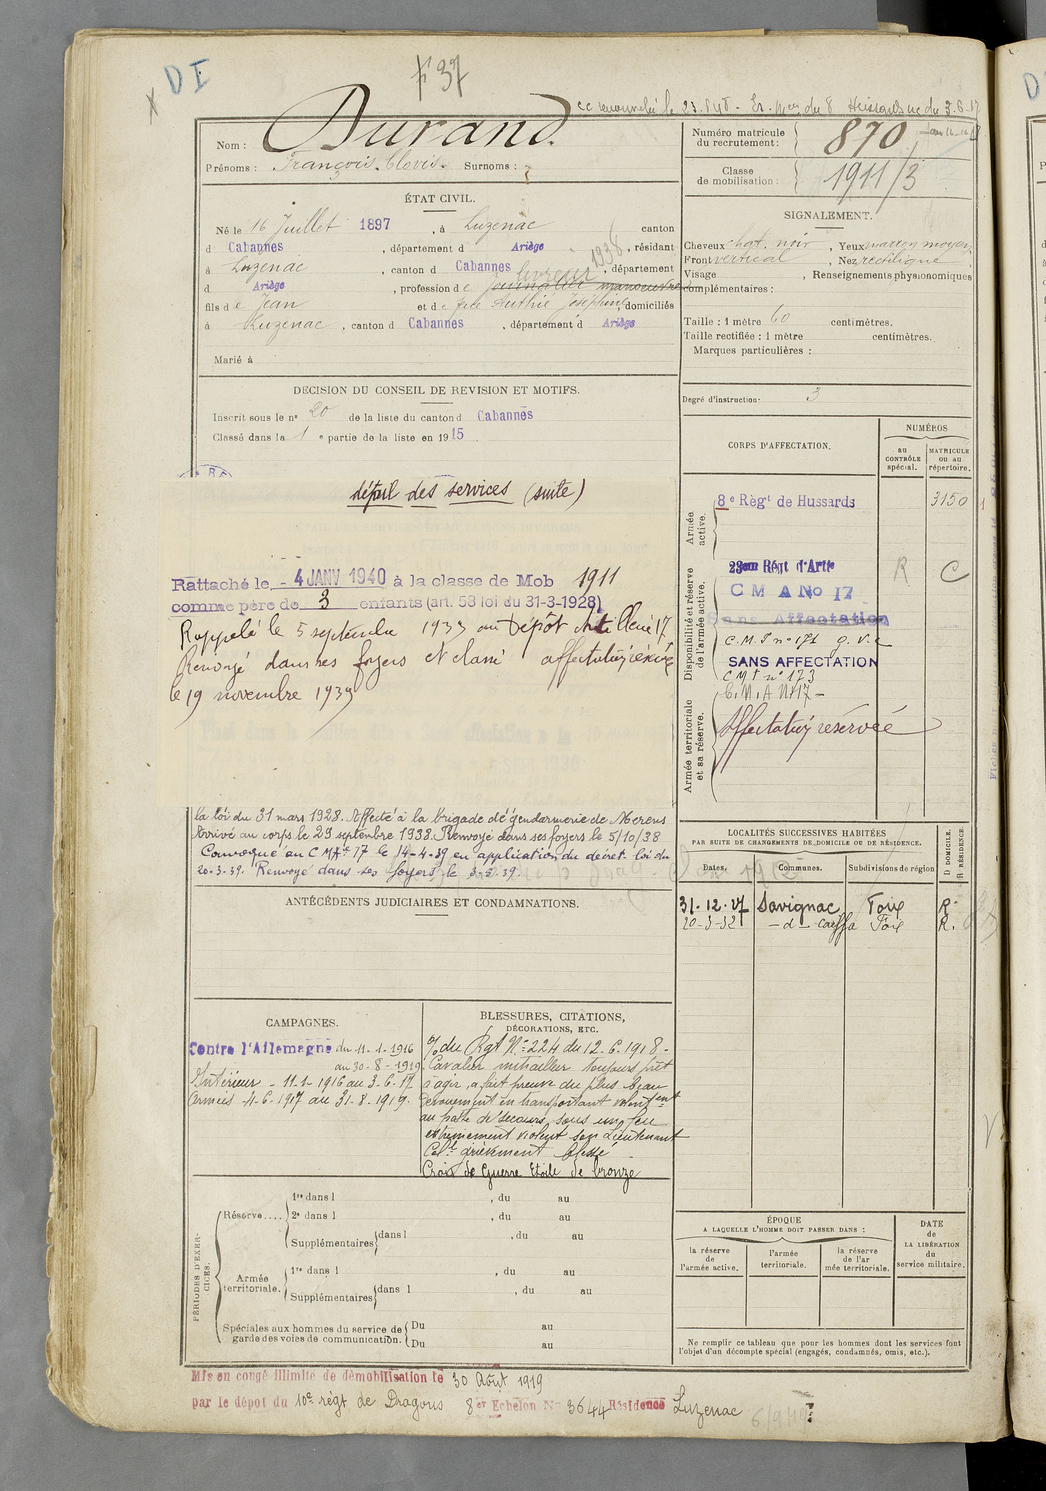 DI
F 37
Durand.
Nom :
Prénoms : François. Clovis. Surnoms :
ÉTAT CIVIL.
Né le 16 Juillet 1897, à Luzenac canton
d Cabannes, département d Ariège, résidant
à Luzenac, canton d Cabannes, département
d Ariège, profession de livreur 1938 manoeuvre
fils de Jean et de feue Authié Joséphine domiciliés
à Luzenac, canton d Cabannes, département d Ariège
Marié à
DÉCISION DU CONSEIL DE REVISION ET MOTIFS.
Inscrit sous le nº 20 de la liste du canton d Cabannes
Classé dans la 1 e partie de la liste en 1915
détail des services (suite)
Rattaché le - 4 JANV 1940 à la classe de Mob 1911
comme père de 3 enfants (art. 58 loi du 31-3-1928)
Rappelé le 5 septembre 1939 au Dépôt Artillerie 17
Renvoyé dans ses foyers et classé affectation réservée
le 19 novembre 1939
la loi du 31 mars 1928. Affecté à la brigade de gendarmerie de Merens
Arrivé au corps le 29 septembre 1938. Renvoyé dans ses foyers le 5/10/38
Convoqué au CMA nº 17 le 14-4-39 en application du décret-loi du
20-3-39. Renvoyé dans ses foyers le 3-5-39.
ANTÉCÉDENTS JUDICIAIRES ET CONDAMNATIONS.
CAMPAGNES.
Contre l'Allemagne du 11-1-1916
au 30-8-1919
Intérieur - 11-1-1916 au 3-6-17
Armées 4-6-1917 au 31-8-1919.
BLESSURES, CITATIONS,
DÉCORATIONS, ETC.
o/ du Rgt Nº 224 du 12-6-1918 -
Cavalier mitrailleur toujours prêt
à agir, a fait preuve du plus beau
dévouement en transportant volontent
au poste de secours, sous un feu
extrêmement violent son Lieutenant
Colel grièvement blessé
Croix de Guerre Etoile de bronze
PÉRIODES D'EXERCICES.
Réserve....
1re dans l , du au
2e dans l , du au
Supplémentaires dans l , du au
Armée territoriale.
1re dans l , du au
Supplémentaires dans l , du au
Spéciales aux hommes du service de garde des voies de communication.
Du au
Du au
Mis en congé illimité de démobilisation le 30 Août 1919
par le dépot du 10e régt de Dragons 8er Echelon Nº 3644 Résidence Luzenac
Numéro matricule
du recrutement : 870
Classe
de mobilisation : 1911/3
SIGNALEMENT.
Cheveux chat. noir, Yeux marron moyen
Front vertical, Nez rectiligne
Visage , Renseignements physionomiques
complémentaires :
Taille : 1 mètre 60 centimètres.
Taille rectifiée : 1 mètre centimètres.
Marques particulières :
Degré d'instruction : 3
CORPS D'AFFECTATION.
NUMÉROS
au
CONTRÔLE
spécial.
MATRICULE
ou au
répertoire.
Armée active.
8e Régt de Hussards 3150
Disponibilité et réserve de l'armée active.
23em Régt d'Artie R C
C M A No 17
Sans Affectation
SANS AFFECTATION
C M I nº 173
C. M. A Nº 17 -
Armée territoriale et sa réserve.
Affectation réservée
LOCALITÉS SUCCESSIVES HABITÉES
PAR SUITE DE CHANGEMENTS DE DOMICILE OU DE RÉSIDENCE.
D DOMICILE.
R RÉSIDENCE.
Dates. Communes. Subdivisions de région
31-12-27 Savignac Foix R.
20-3-32 -d- Foix R.
ÉPOQUE
A LAQUELLE L'HOMME DOIT PASSER DANS :
la réserve
de
l'armée active.
l'armée
territoriale.
la réserve
de l'ar
mée territoriale.
DATE
de
LA LIBÉRATION
du
service militaire.
Ne remplir ce tableau que pour les hommes dont les services font
l'objet d'un décompte spécial (engagés, condamnés, omis, etc.).